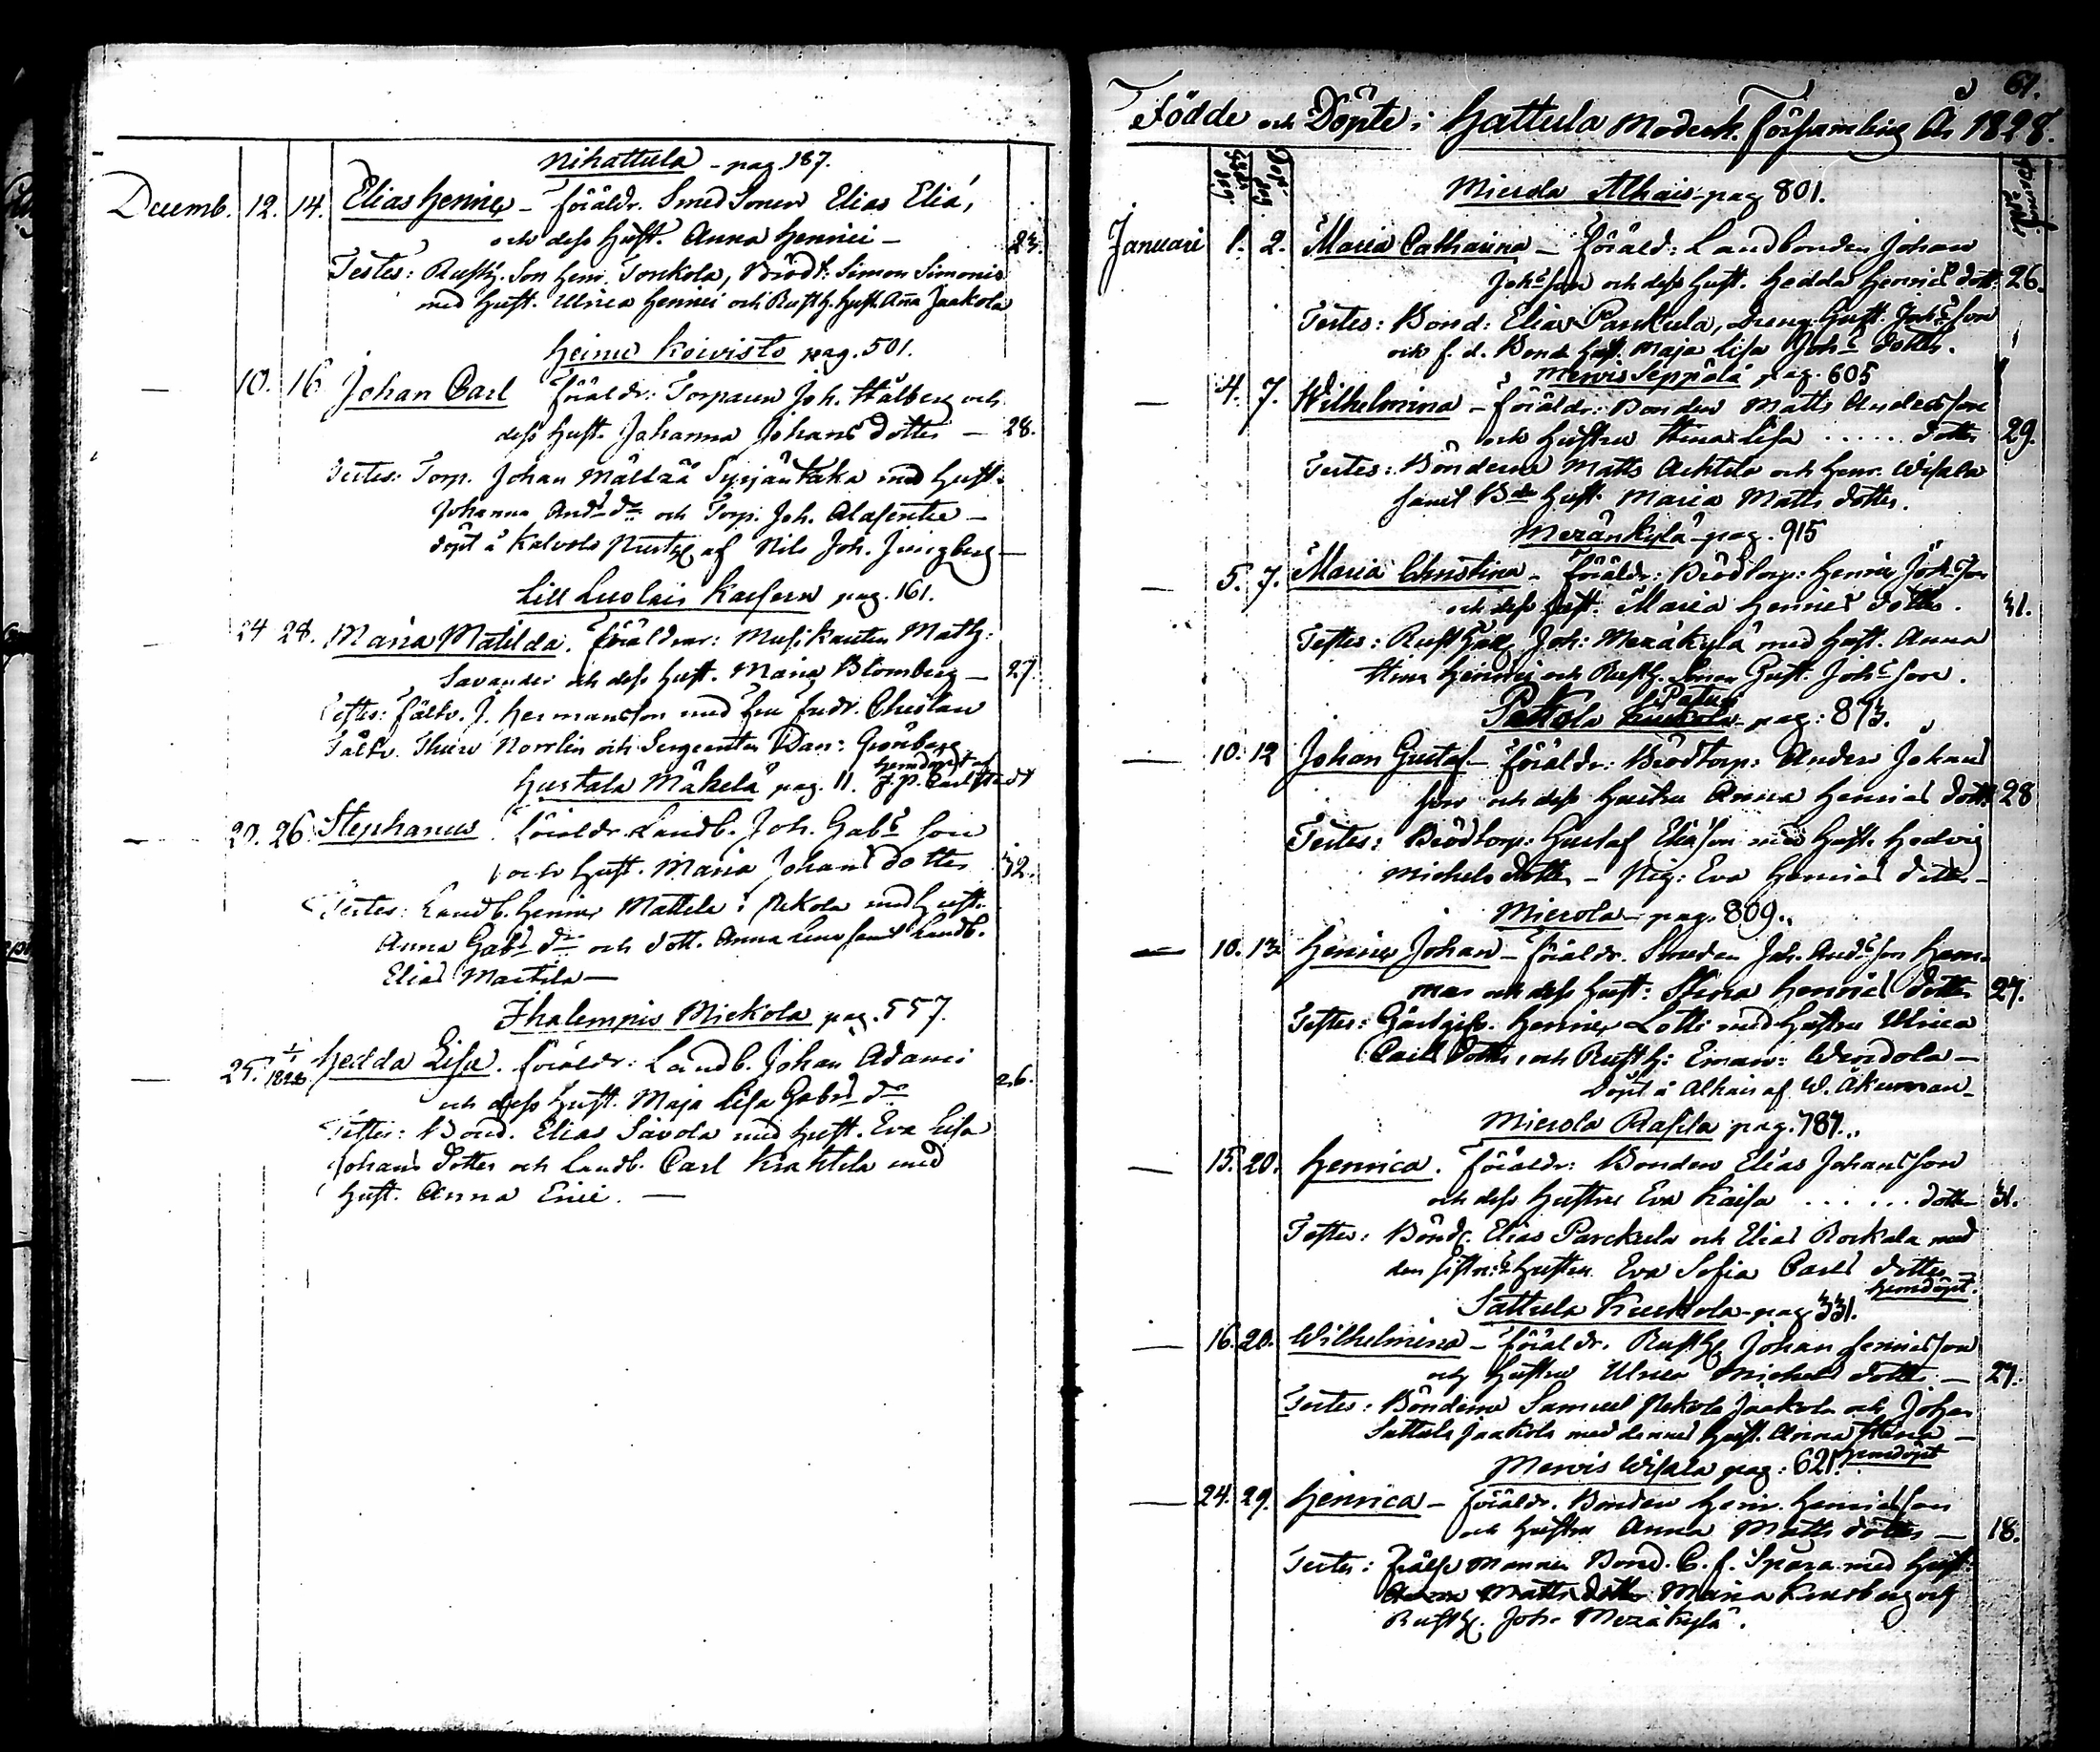 Nihattula - pag. 187.
Decemb. 12. 14. Elias Henric - föräldr. Smed Sonen Elias Eliæ,
och dess Hust. Anna Henrici - 23.
Testes: Rusth. Son Henr. Tonkola, Brödt. Simon Simonis
med Hust. Ulrica Henrici och Rusth. Hust. Anna Jaakola
Heinu Koivisto pag. 501.
— 10. 16 Johan Carl föräldr: Torparen Joh. Hålberg och
dess Hust. Johanna Johans dotter — 28.
Testes: Torp. Johan Mällzää Syrjäntaka med Hust.
Johanna And.s d.r och Torp. Joh. Alasentie —
döpt i Kalvola af Nils Joh. Jungberg —
Lill Luolais Kasern pag. 161.
— 24 28. Maria Matilda. föräldrar: Musikanten Math:
Savander och dess Hust. Maria Blomberg — 27
Testes: fältv. J. Hermansson med fru Fredr.
Fältv. Thure Norrlin och Sergeanten Dan: Grönberg
hemdöpt af
Hurtala Mäkelä pag. 11. J. P. Carlstedt
— 20. 26. Stephanus. föräldr. Landb. Joh. Gab.s son
och Hust. Maria Johans dotter 32.
Testes: Landb. Henric Mattila i Rekola med Hust.
Anna Gab.s d.r och dott. Anna Lena samt Landb.
Elias Martila —
Ihalempis Mickola pag. 557.
— 25. 1/1 1828. Hedda Lisa. föräldr: Landb. Johan Adami
och dess Hust. Maja Lisa Gabr.s d.r 26.
Testes: Bond. Elias Savola med Hust. Eva Lisa
Johans dotter och Landb. Carl Krahtila med
Hust. Anna Erici. —
61.
Födde och Döpte i Hattula Moderk. Församling År 1828.
Mierola Alhais - pag 801.
Januari 1. 2. Maria Catharina — föräld: Landbonden Johan
Joh.s son och dess Hust. Hedda Henrics dott: 26.
Testes: Bond: Elias Parckula, Dreng. Gust. Joh.s son
och f. d. Bond. Hust. Maja Lisa Joh.s dotter.
Mervis Seppälä pag. 605
— 4. 7. Wilhelmina — föräldr: Bonden Matts Andersson
och Hustru Stina Lisa ...... dotter 29.
Testes: Bönderne Matts Achtila och Henr. Wisala
samt B.de Hust. Maria Matts dotter.
Meränkylä - pag. 915
— 5. 7. Maria Christina — föräldr: Brödtorp: Henric Joh.s son
och dess Hust. Maria Henrics dotter. 31.
Testes: Rusthåll. Joh: Meräkylä med Hust. Anna
Stina Henrici och Rusth. Sonen Gust. Joh.s son.
Pekola pag: 873.
— 10. 12 Johan Gustaf — föräldr: Brödtorp: Anders Johans
son och dess Hustru Anna Henrics dott: 28
Testes: Brödtorp: Gustaf Eliæson med Hust. Hedvig
Michels dotter — Pig: Eva Henrics dotter —
Mierola - pag. 809.
— 10. 13 Henric Johan — föräldr. Smeden Joh. And.s son
och dess Hust: Stina Henrics dotter 27.
Testes: Gästgifv. Henric Lotti med Hustru Ulrica
Carls dotter, och Rusth: Eman: Wendola —
Döpt i Alhais af W. Åkerman —
Mierola Rasila pag. 787.
— 15. 20. Henrica. föräldr: Bonden Elias Johansson
och dess Hustru Eva Kaisa ...... dotter 31.
Testes: Bönd. Elias Parckula och Elias Rockala med
den sistn:s Hustru Eva Sofia Carls dotter —
hemdöpt.
Sattula Kuckola - pag 331.
— 16. 20. Wilhelmina — föräldr. Rusth. Johan Henricsson
och Hustru Ulrica Michels dotter — 27.
Testes: Bönderne Samuel Rekola Jaakola och Johan
Sattula Jaakola med dennes Hust. Anna Stina —
hemdöpt
Mervis Wisala pag: 621.
— 24. 29. Henrica — föräldr. Bonden Henr. Henricsson
och Hustru Anna Matts dotter — 18.
Testes: frälse Mannen Bond. C. f. Spåra med Hust:
Maria och
Rusth. Joh. Meräkylä.